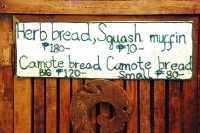 Herb bread, Squash muffin
₱180- ₱10-
Camote bread Camote bread
BIG ₱120- Small ₱80-